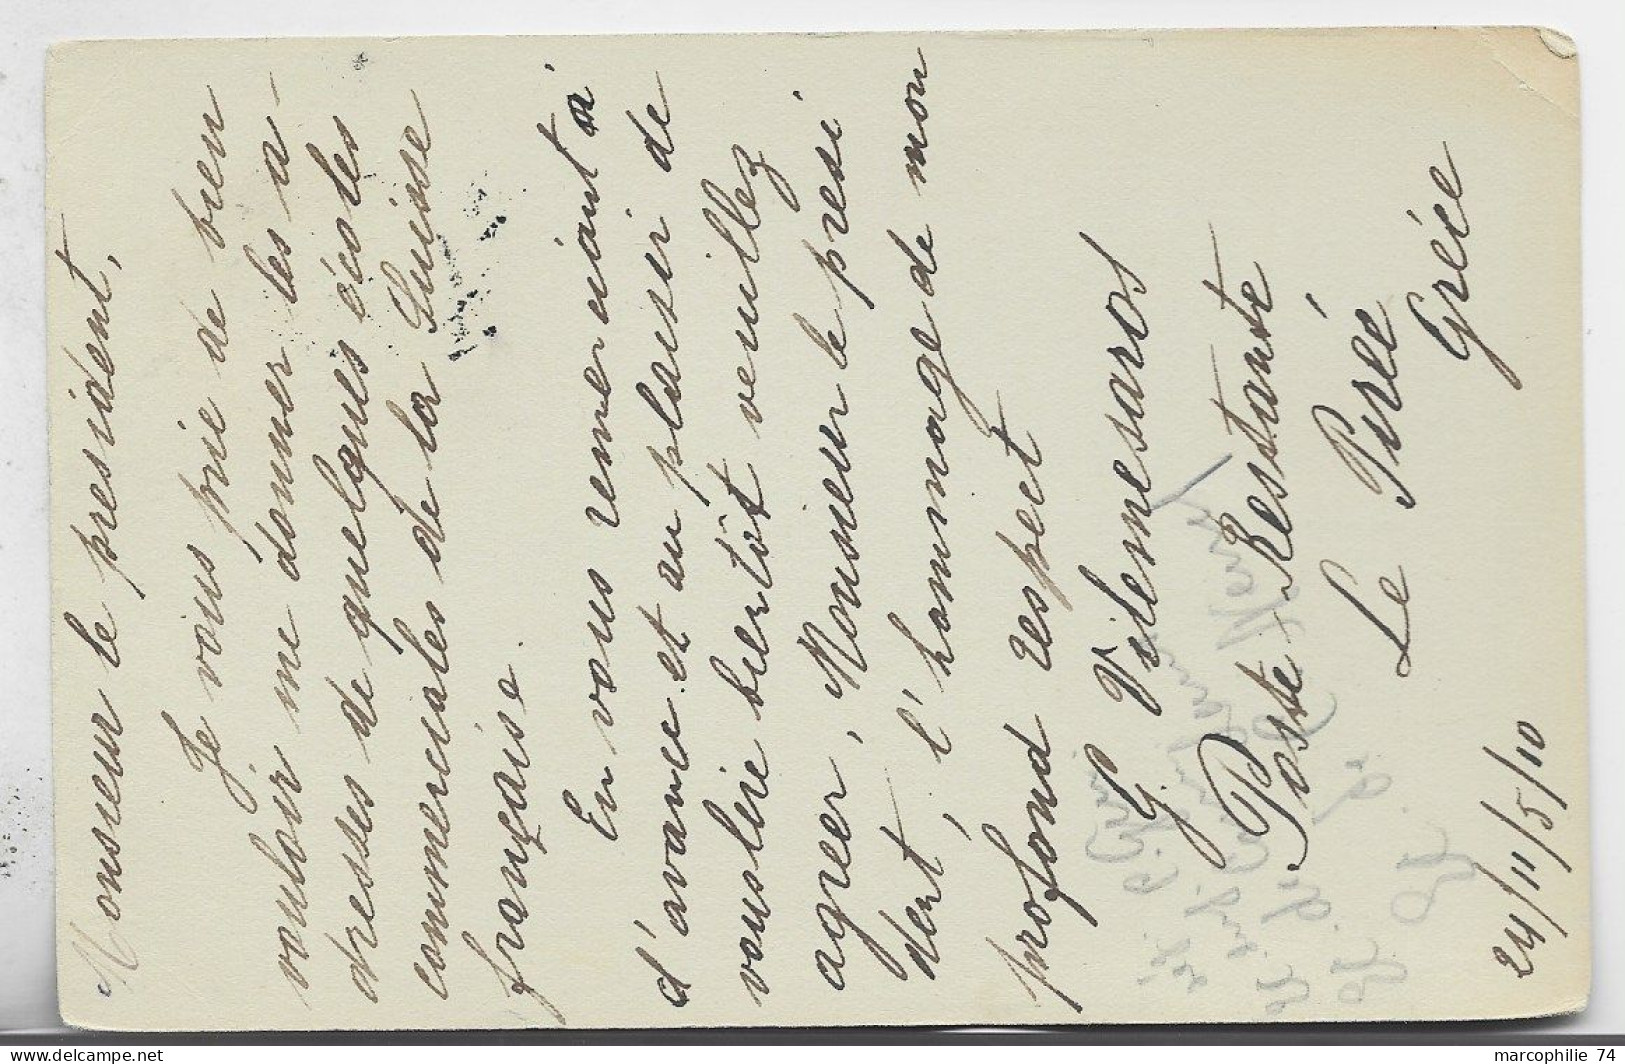 Monsieur le president,
Je vous prie de bien
vouloir me donner les a-
dresses de quelques écoles
commerciales de la Suisse
française.
En vous remerciant à
d'avance et au plaisir de
vous lire bientôt veuillez
agreer, Monsieur le presi
dent, l'hommage de mon
profond respect
G. Vilemesaros
Poste-Restante
Le Pirée
Grèce
24/11/5/10
marcophilie 74